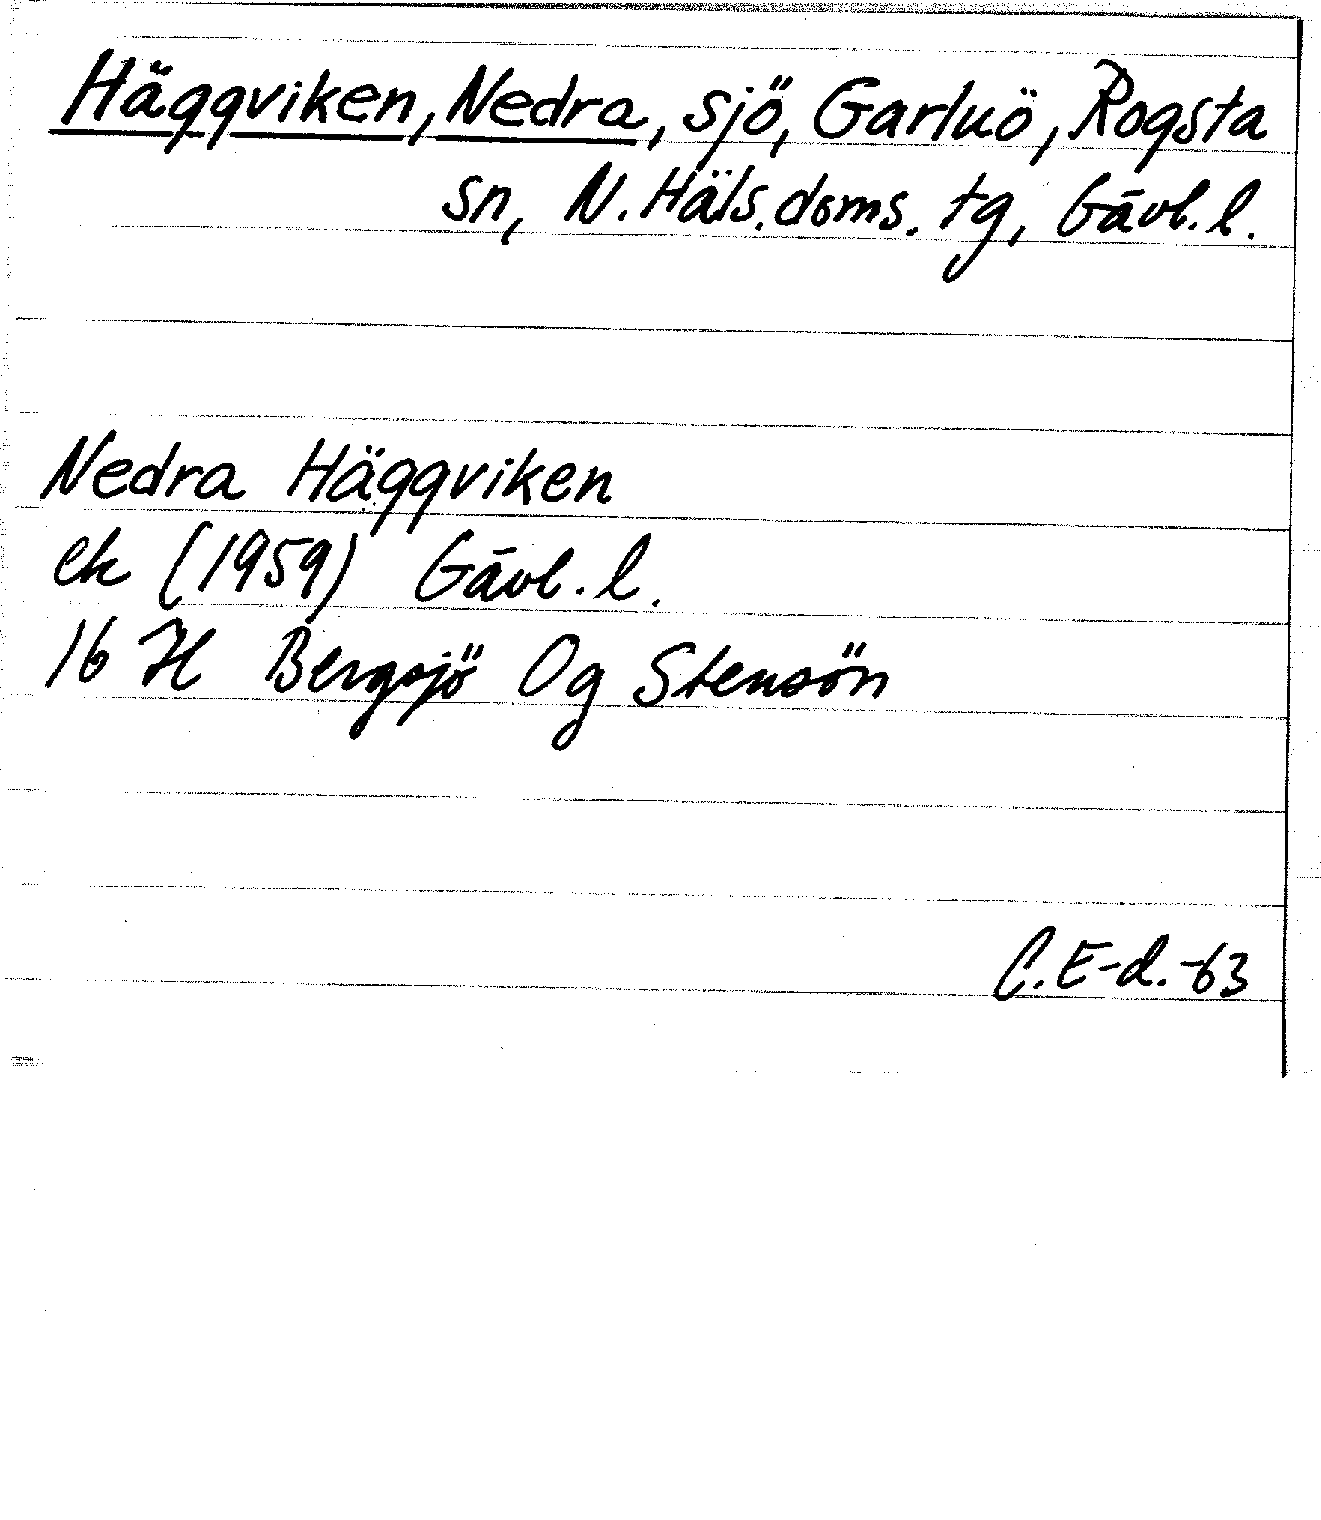 Häggviken, Nedra, sjö, Garluö, Rogsta
sn, N. Häls. doms. tg, Gävl. l.
Nedra Häggviken
ek (1959) Gävl. l.
16 H Bergsjö Og Stensön
C. E-d. -63